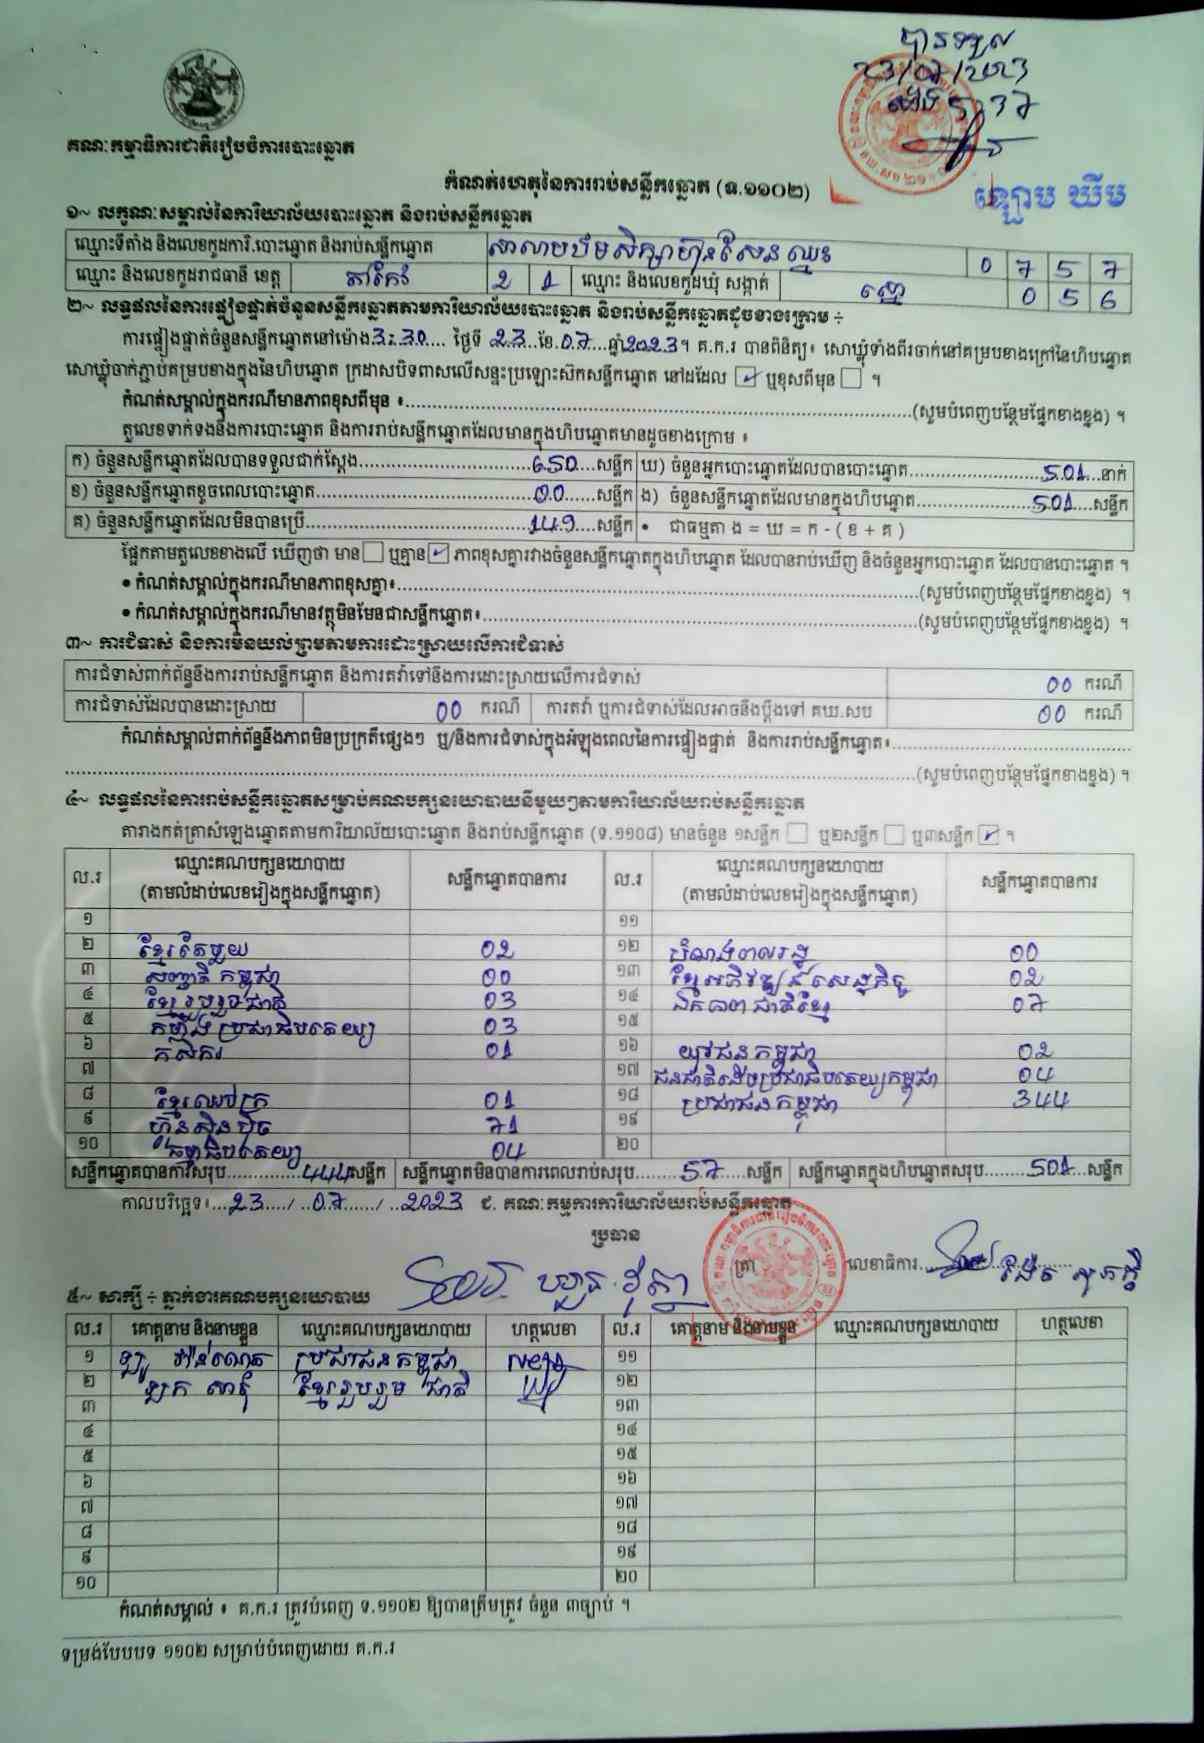 បានទទួល
23/07/2023
ម៉ោង 5:37
ឡោម ឃីម
គណៈកម្មាធិការជាតិរៀបចំការបោះឆ្នោត
កំណត់ហេតុនៃការរាប់សន្លឹកឆ្នោត (ទ.១១០២)
១~ លក្ខណៈសម្គាល់នៃការិយាល័យបោះឆ្នោត និងរាប់សន្លឹកឆ្នោត
ឈ្មោះទីតាំង និងលេខកូដការិ.បោះឆ្នោត និងរាប់សន្លឹកឆ្នោត សាលាបឋមសិក្សាហ៊ុនសែន 0 7 5 7
ឈ្មោះ និងលេខកូដរាជធានី ខេត្ត តាកែវ 2 1 ឈ្មោះ និងលេខកូដឃុំ សង្កាត់ 0 5 6
២~ លទ្ធផលនៃការផ្ទៀងផ្ទាត់ចំនួនសន្លឹកឆ្នោតតាមការិយាល័យបោះឆ្នោត និងរាប់សន្លឹកឆ្នោតដូចខាងក្រោម ÷
ការផ្ទៀងផ្ទាត់ចំនួនសន្លឹកឆ្នោតនៅម៉ោង 3:30 ថ្ងៃទី 23 ខែ 07 ឆ្នាំ 2023។ គ.ក.រ បានពិនិត្យ៖ សោឃ្លុំទាំងពីរចាក់នៅគម្របខាងក្រៅនៃហិបឆ្នោត
សោឃ្លុំចាក់ភ្ជាប់គម្របខាងក្នុងនៃហិបឆ្នោត ក្រដាសបិទពាសលើសន្ទះប្រឡោះស៊កសន្លឹកឆ្នោត នៅដដែល ☑ ឬខុសពីមុន ☐ ។
កំណត់សម្គាល់ក្នុងករណីមានភាពខុសពីមុន ៖ (សូមបំពេញបន្ថែមផ្នែកខាងខ្នង) ។
តួលេខទាក់ទងនឹងការបោះឆ្នោត និងការរាប់សន្លឹកឆ្នោតដែលមានក្នុងហិបឆ្នោតមានដូចខាងក្រោម ៖
ក) ចំនួនសន្លឹកឆ្នោតដែលបានទទួលជាក់ស្តែង 650 សន្លឹក ឃ) ចំនួនអ្នកបោះឆ្នោតដែលបានបោះឆ្នោត 501 នាក់
ខ) ចំនួនសន្លឹកឆ្នោតខូចពេលបោះឆ្នោត 00 សន្លឹក ង) ចំនួនសន្លឹកឆ្នោតដែលមានក្នុងហិបឆ្នោត 501 សន្លឹក
គ) ចំនួនសន្លឹកឆ្នោតដែលមិនបានប្រើ 149 សន្លឹក • ជាធម្មតា ង = ឃ = ក - ( ខ + គ )
ផ្អែកតាមតួលេខខាងលើ ឃើញថា មាន ☐ ឬគ្មាន ☑ ភាពខុសគ្នារវាងចំនួនសន្លឹកឆ្នោតក្នុងហិបឆ្នោត ដែលបានរាប់ឃើញ និងចំនួនអ្នកបោះឆ្នោត ដែលបានបោះឆ្នោត ។
• កំណត់សម្គាល់ក្នុងករណីមានភាពខុសគ្នា៖ (សូមបំពេញបន្ថែមផ្នែកខាងខ្នង) ។
• កំណត់សម្គាល់ក្នុងករណីមានវត្ថុមិនមែនជាសន្លឹកឆ្នោត៖ (សូមបំពេញបន្ថែមផ្នែកខាងខ្នង) ។
៣~ ការជំទាស់ និងការមិនយល់ព្រមតាមការដោះស្រាយលើការជំទាស់
ការជំទាស់ពាក់ព័ន្ធនឹងការរាប់សន្លឹកឆ្នោត និងការតវ៉ាទៅនឹងការដោះស្រាយលើការជំទាស់ 00 ករណី
ការជំទាស់ដែលបានដោះស្រាយ 00 ករណី ការតវ៉ា ឬការជំទាស់ដែលអាចនឹងប្តឹងទៅ គឃ.សប 00 ករណី
កំណត់សម្គាល់ពាក់ព័ន្ធនឹងភាពមិនប្រក្រតីផ្សេងៗ ឬ/និងការជំទាស់ក្នុងអំឡុងពេលនៃការផ្ទៀងផ្ទាត់ និងការរាប់សន្លឹកឆ្នោត៖
(សូមបំពេញបន្ថែមផ្នែកខាងខ្នង) ។
៤~ លទ្ធផលនៃការរាប់សន្លឹកឆ្នោតសម្រាប់គណបក្សនយោបាយនីមួយៗតាមការិយាល័យរាប់សន្លឹកឆ្នោត
តារាងកត់ត្រាសំឡេងឆ្នោតតាមការិយាល័យបោះឆ្នោត និងរាប់សន្លឹកឆ្នោត (ទ.១១០៨) មានចំនួន ១សន្លឹក ☐ ឬ២សន្លឹក ☐ ឬ៣សន្លឹក ☑ ។
ល.រ ឈ្មោះគណបក្សនយោបាយ (តាមលំដាប់លេខរៀងក្នុងសន្លឹកឆ្នោត) សន្លឹកឆ្នោតបានការ ល.រ ឈ្មោះគណបក្សនយោបាយ (តាមលំដាប់លេខរៀងក្នុងសន្លឹកឆ្នោត) សន្លឹកឆ្នោតបានការ
១ ១១
២ ខ្មែរតែមួយ 02 ១២ បំណងពលរដ្ឋ 00
៣ សញ្ជាតិកម្ពុជា 00 ១៣ ខ្មែរអភិវឌ្ឍន៍សេដ្ឋកិច្ច 02
៤ ខ្មែររួបរួមជាតិ 03 ១៤ ឯកភាពជាតិខ្មែរ 07
៥ កម្លាំងប្រជាធិបតេយ្យ 03 ១៥
៦ កសិករ 01 ១៦ យុវជនកម្ពុជា 02
៧ ១៧ ជនជាតិដើមប្រជាធិបតេយ្យកម្ពុជា 04
៨ ខ្មែរឈប់ក្រ 01 ១៨ ប្រជាជនកម្ពុជា 344
៩ ហ៊្វុនស៊ិនប៉ិច 71 ១៩
១០ ធម្មាធិបតេយ្យ 04 ២០
សន្លឹកឆ្នោតបានការសរុប 444 សន្លឹក សន្លឹកឆ្នោតមិនបានការពេលរាប់សរុប 57 សន្លឹក សន្លឹកឆ្នោតក្នុងហិបឆ្នោតសរុប 501 សន្លឹក
កាលបរិច្ឆេទ៖ 23 / 07 / 2023 ៩. គណៈកម្មការការិយាល័យរាប់សន្លឹកឆ្នោត
ប្រធាន
ត្រា លេខាធិការ
៥~ សាក្សី ÷ ភ្នាក់ងារគណបក្សនយោបាយ
ល.រ គោត្តនាម និងនាមខ្លួន ឈ្មោះគណបក្សនយោបាយ ហត្ថលេខា ល.រ គោត្តនាម និងនាមខ្លួន ឈ្មោះគណបក្សនយោបាយ ហត្ថលេខា
១ ប្រជាជនកម្ពុជា ១១
២ ខ្មែររួបរួមជាតិ ១២
៣ ១៣
៤ ១៤
៥ ១៥
៦ ១៦
៧ ១៧
៨ ១៨
៩ ១៩
១០ ២០
កំណត់សម្គាល់ ៖ គ.ក.រ ត្រូវបំពេញ ទ.១១០២ ឱ្យបានត្រឹមត្រូវ ចំនួន ៣ច្បាប់ ។
ទម្រង់បែបបទ ១១០២ សម្រាប់បំពេញដោយ គ.ក.រ